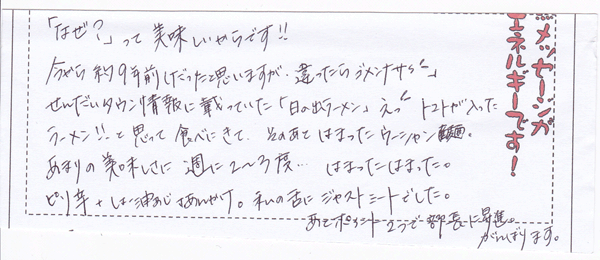 「なぜ?」って美味しいからです!!
今から約9年前(だったと思いますが、違ったらゴメンナサイ)
せんだいタウン情報に載っていた「日の出ラーメン」えっ トマトが入った
ラーメン!!と思って食べにきて、そのあとはまったウーシャン麺。
あまりの美味しさに週に2〜3度… はまったはまった。
ピリ辛+しょう油あじはあんかけ。私の舌にジャストミートでした。
あとポイント2つで部長に昇進。
がんばります。
メッセージが
エネルギーです!